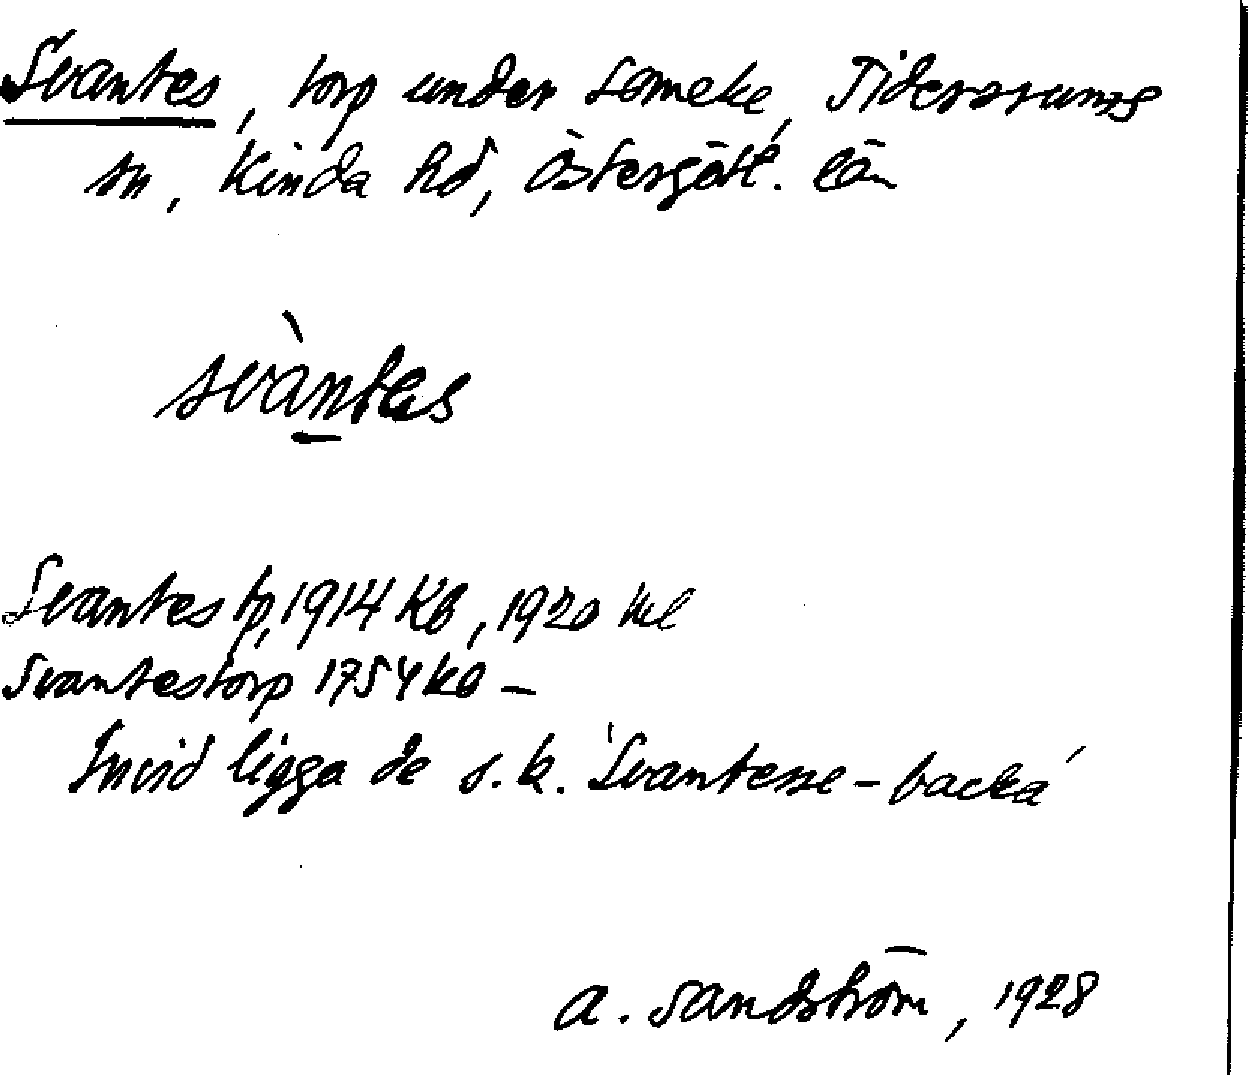 Svantes, torp under Someke, Tidersrums
sn, Kinda hd, Östergötl. län
svàntes
Svantes tp, 1914 Kb, 1920 ml
Svantestorp 1754 kb –
Invid ligga de s.k. 'Svantesse-backa'
A. Sandström, 1928